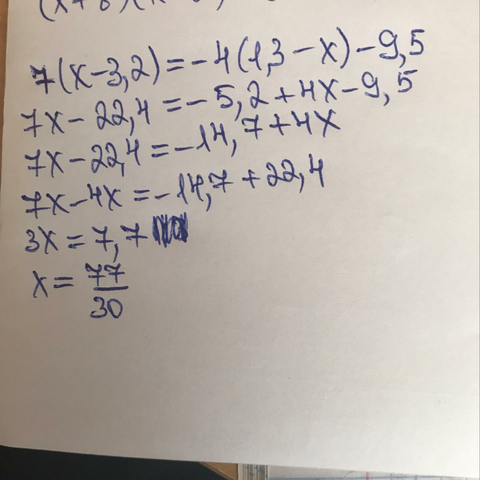 7(x-3,2)=-4(1,3-x)-9,5
7x-22,4=-5,2+4x-9,5
7x-22,4=-14,7+4x
7x-4x=-14,7+22,4
3x=7,7
x=77/30